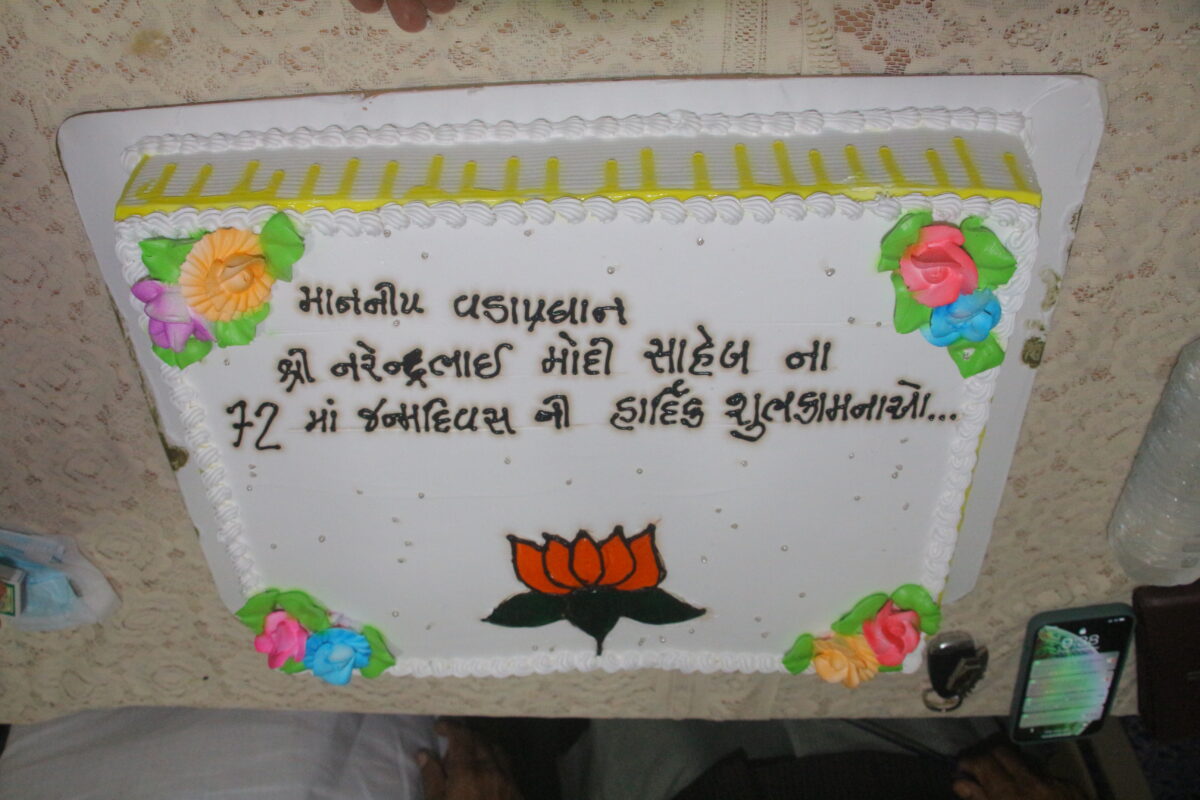 માનનીય વડાપ્રધાન
શ્રી નરેન્દ્રભાઈ મોદી સાહેબ ના
72 માં જન્મદિવસ ની હાર્દિક શુભકામનાઓ...
9:38